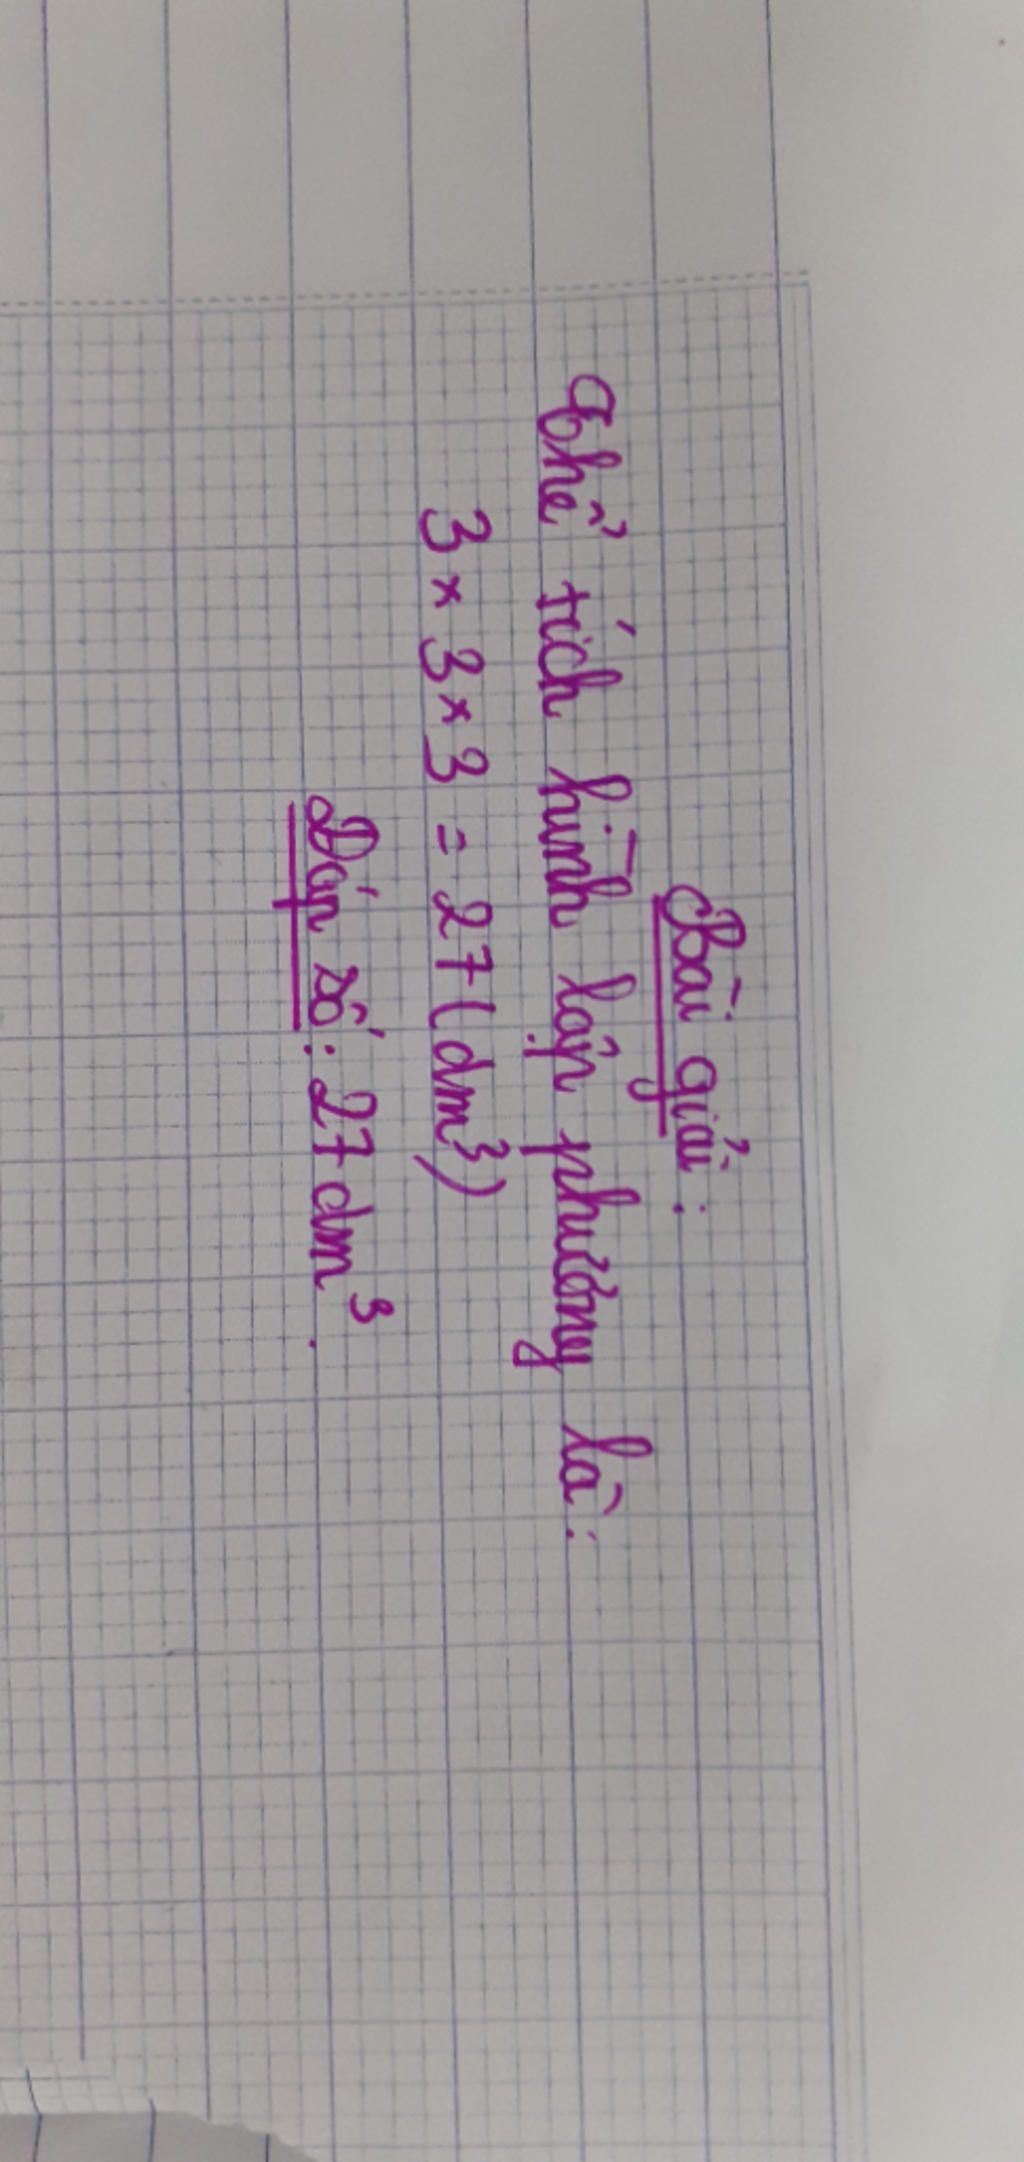 Bài giải:
Thể tích hình lập phương là:
3 × 3 × 3 = 27 (dm³)
Đáp số: 27 dm³.